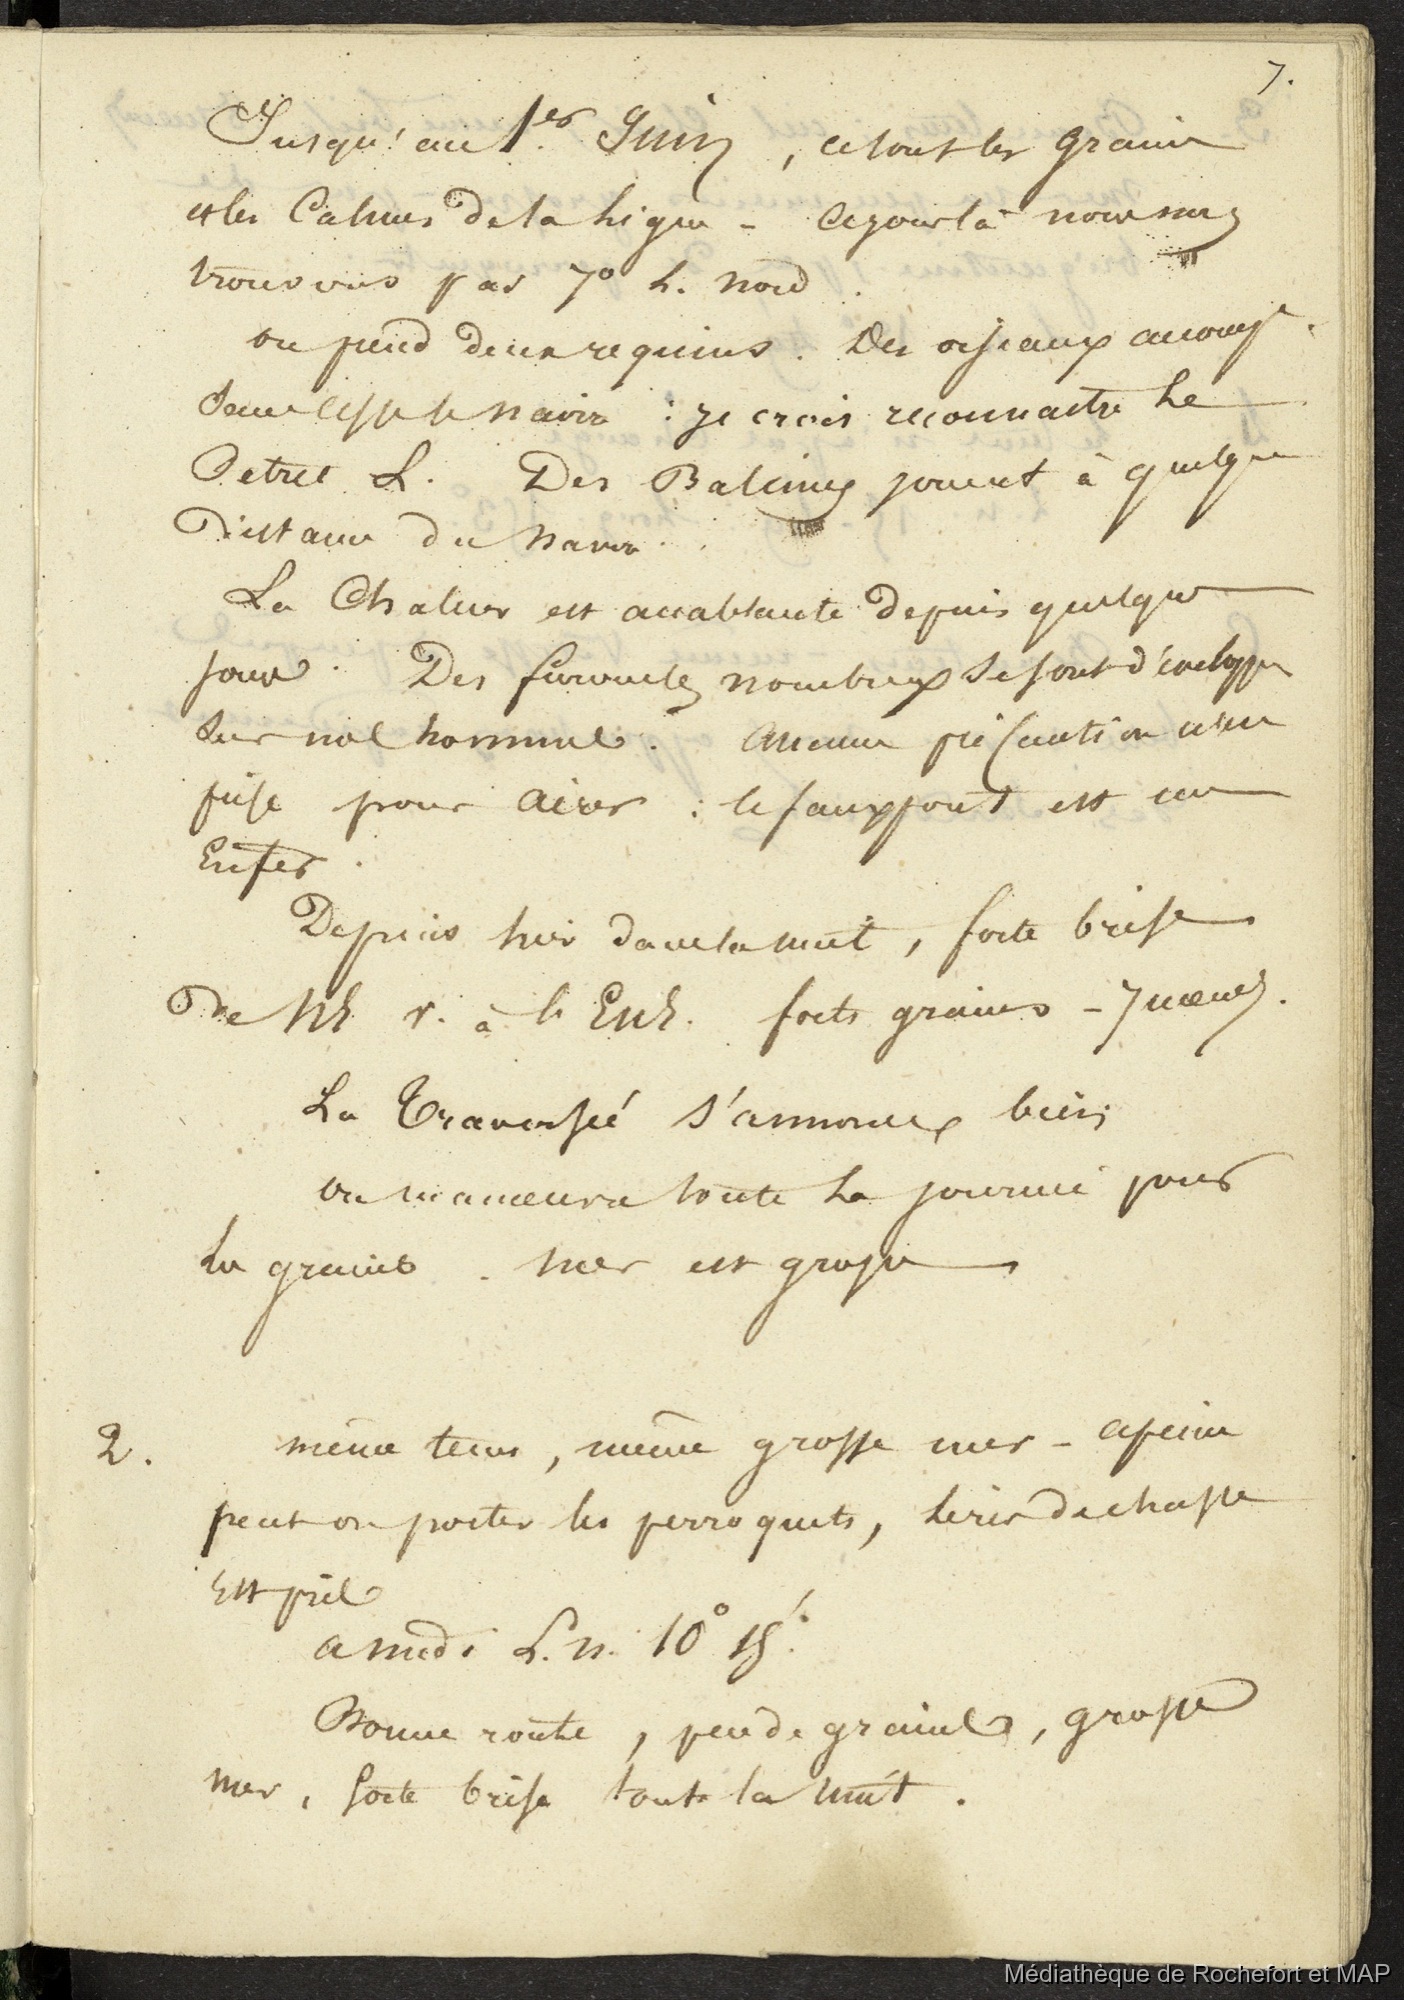 7.
Jusqu'au 1er. Juin, ce sont les grains
et les Calmes de la Ligne - Ce jour là nous nous
trouvons par 7° L. Nord.
on prend deux requins. Des oiseaux accomp.
sans cesse le navire : je crois reconnaitre le
Petrel L. Des Baleines jouent à quelque
distance du navire.
La Chaleur est accablante depuis quelques
jours. Des furoncles nombreux se sont développés
sur nos hommes. Aucune précaution n'est
prise pour aérer : le faux pont est un
Enfer.
Depuis hier dans la nuit, forte brise
de NE r. à l' ENE. forts grains - 7 nœuds.
La Traversée s'annonce bien
on manœuvre toute la journée pour
les grains. Mer est grosse
2.
même tems, même grosse mer - a peine
peut on porter les perroquets, le ris de chasse
Est pris
a midi L. N. 10° 15'.
Bonne route, peu de grains, grosse
mer, forte brise toute la nuit.
Médiathèque de Rochefort et MAP